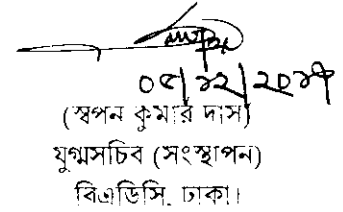 ০৫/১২/২০১৭
(স্বপন কুমার দাস)
যুগ্মসচিব (সংস্থাপন)
বিএডিসি, ঢাকা।